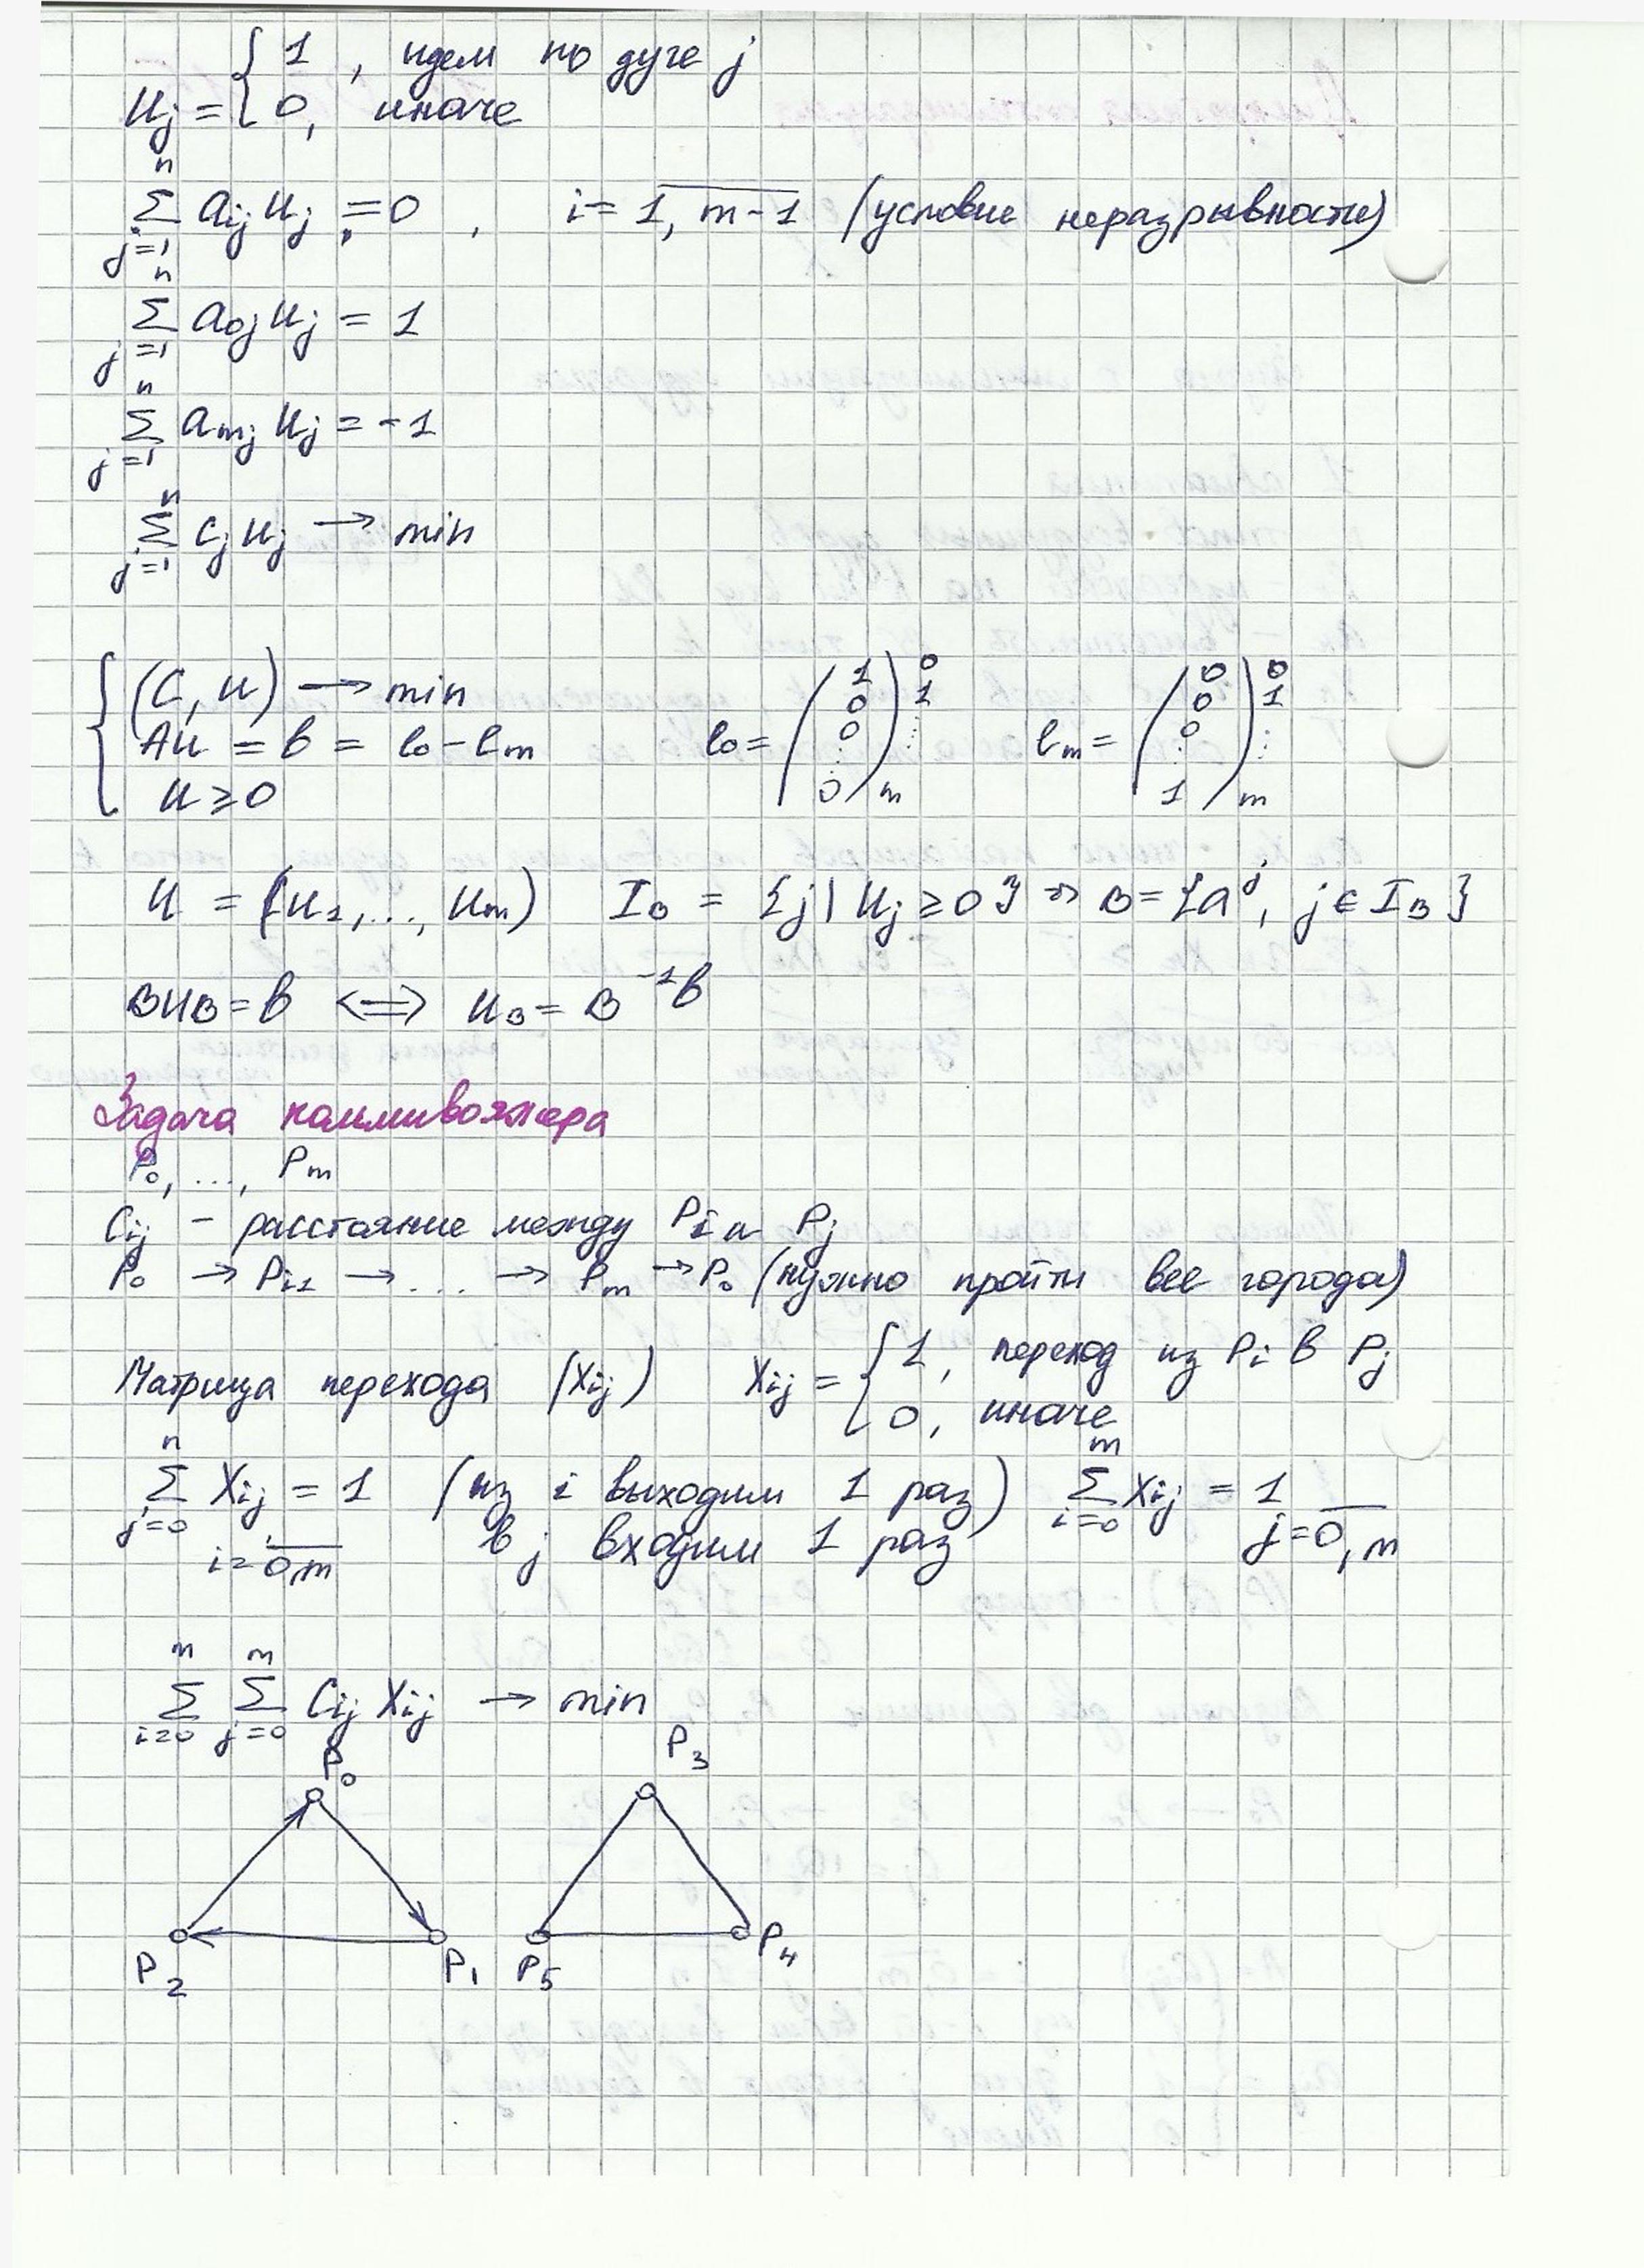 u_j = { 1 , идем по дуге j
0, иначе
n Σ j=1 a_ij u_j = 0 , i = 1, m-1 (условие неразрывности)
n Σ j=1 a_0j u_j = 1
n Σ j=1 a_mj u_j = -1
n Σ j=1 c_j u_j → min
{ (c, u) → min
Au = b = l_0 - l_m l_0 = (1 0 0 ⋮ 0) 0 1 ⋮ m l_m = (0 0 0 ⋮ 1) 0 1 ⋮ m
u ≥ 0
u = (u_1, ..., u_m) I_B = {j | u_j ≥ 0} ⇒ B = {a^j, j ∈ I_B}
Bu_B = b <=> u_B = B^-1 b
Задача коммивояжера
P_0, ..., P_m
C_ij - расстояние между P_i и P_j
P_0 → P_i1 → ... → P_m → P_0 (нужно пройти все города)
Матрица перехода (X_ij) X_ij = { 1, переход из P_i в P_j
0, иначе
n Σ j=0 X_ij = 1 (из i выходим 1 раз) m Σ i=0 X_ij = 1
i = 0,m в j входим 1 раз j = 0, m
m Σ i=0 m Σ j=0 C_ij X_ij → min
P_0 P_3
P_2 P_1 P_5 P_4